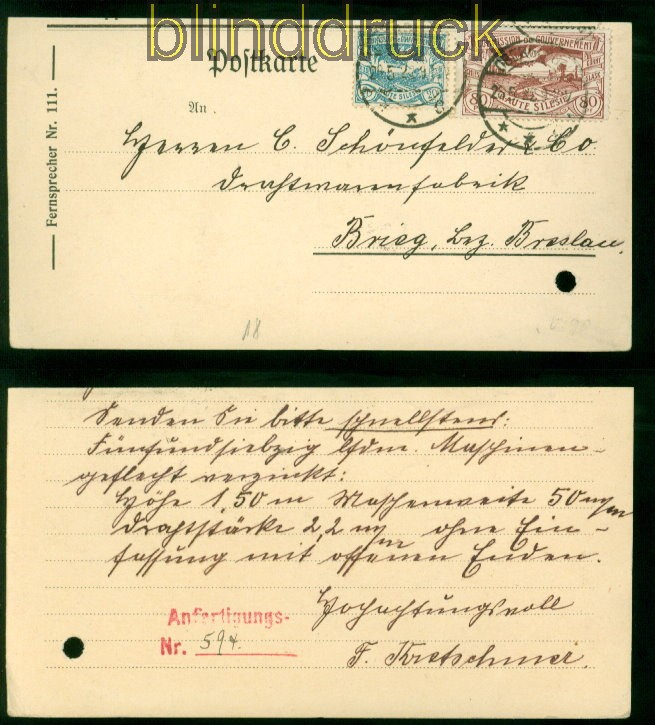 blinddruck
Postkarte
An
Fernsprecher Nr. 111.
COMMISSION DE GOUVERNEMENT
HAUTE SILESIE
20
HAUTE SILESIE
80 80
Herren C. Schönfelder & Co
Drahtwarenfabrik
Brieg, Bez. Breslau.
18
Senden Sie bitte schnellstens:
Fünfundsiebzig lfdm. Maschinen-
geflecht verzinkt:
Höhe 1,50 m Maschenweite 50 m/m
Drahtstärke 2,2 m/m ohne Ein-
fassung mit offenen Enden.
Hochachtungsvoll
F. Kretschmer.
Anfertigungs-
Nr. 594.